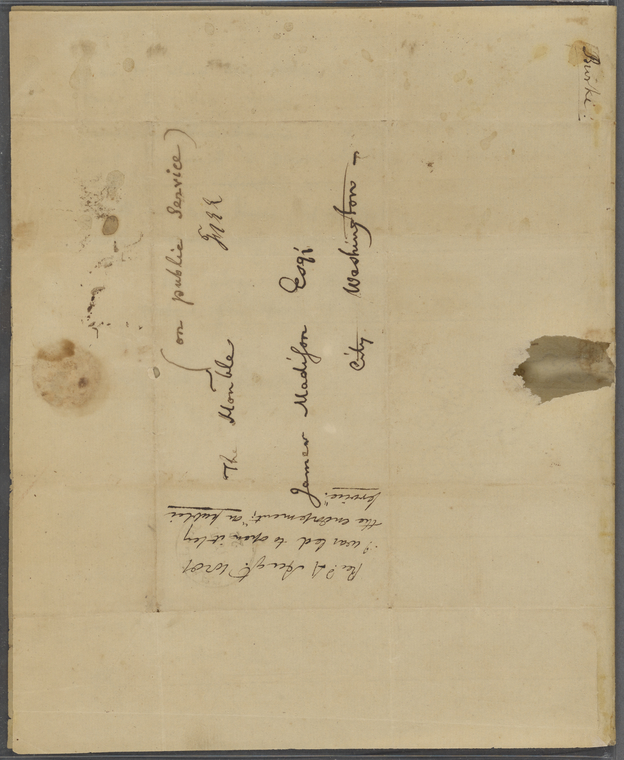 Burke:
(on public Service)
Free
The Honble
James Madison Esqr
City Washington
I was led to open it by
the endorsement, "on public
service".